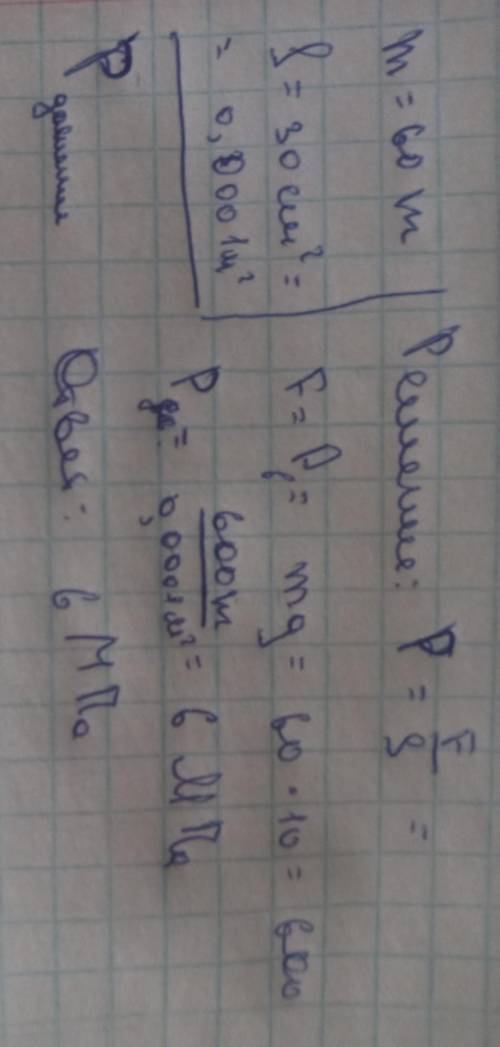 m = 60 т
S = 30 см² =
= 0,0001 м²
P давления
Решение: P = F/S =
F = P, = mg = 60 · 10 = 600
P дав = 600 т / 0,0001 м² = 6 МПа
Ответ: 6 МПа